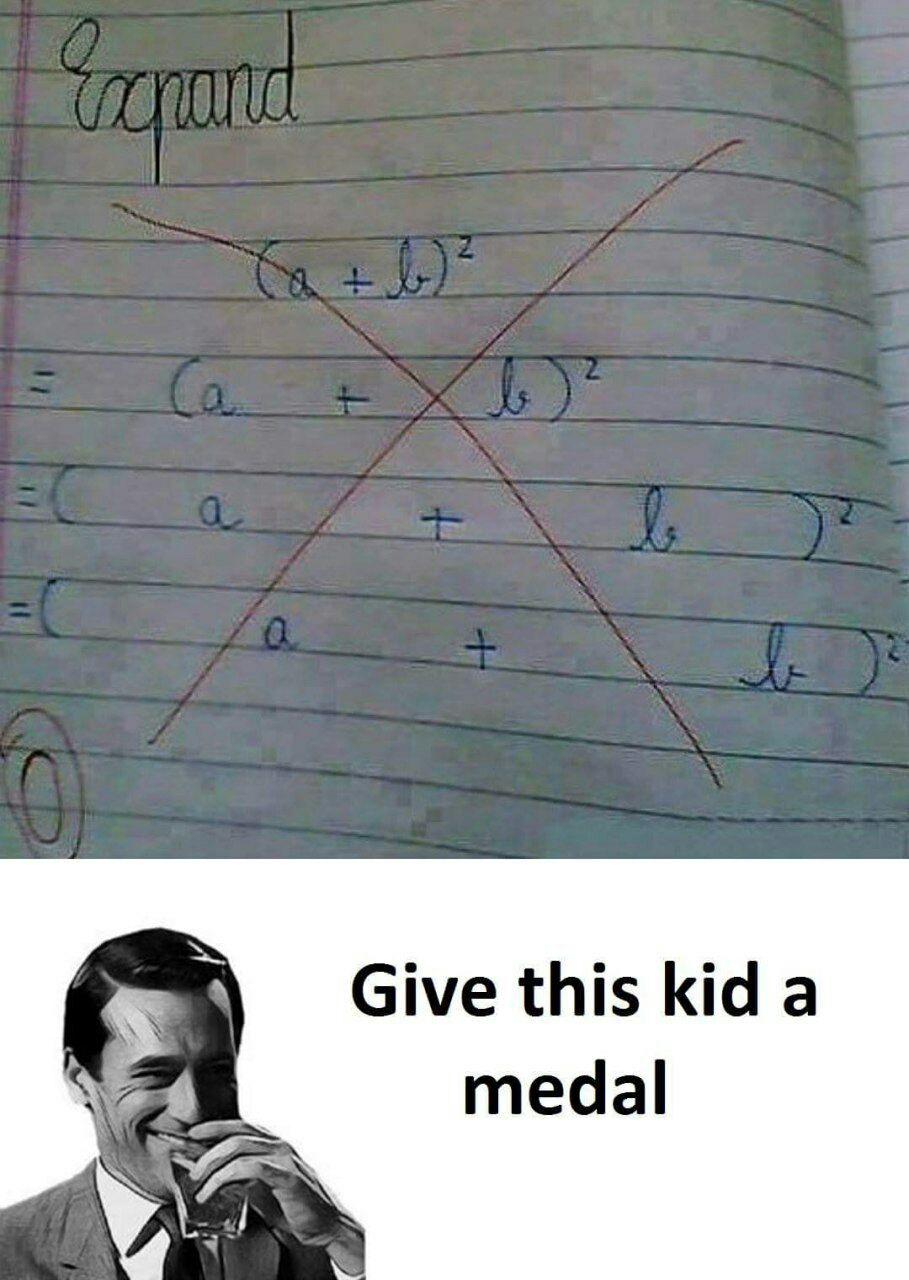 Expand
(a + b)²
= (a + b)²
=( a + b )²
=( a + b )²
0
Give this kid a
medal